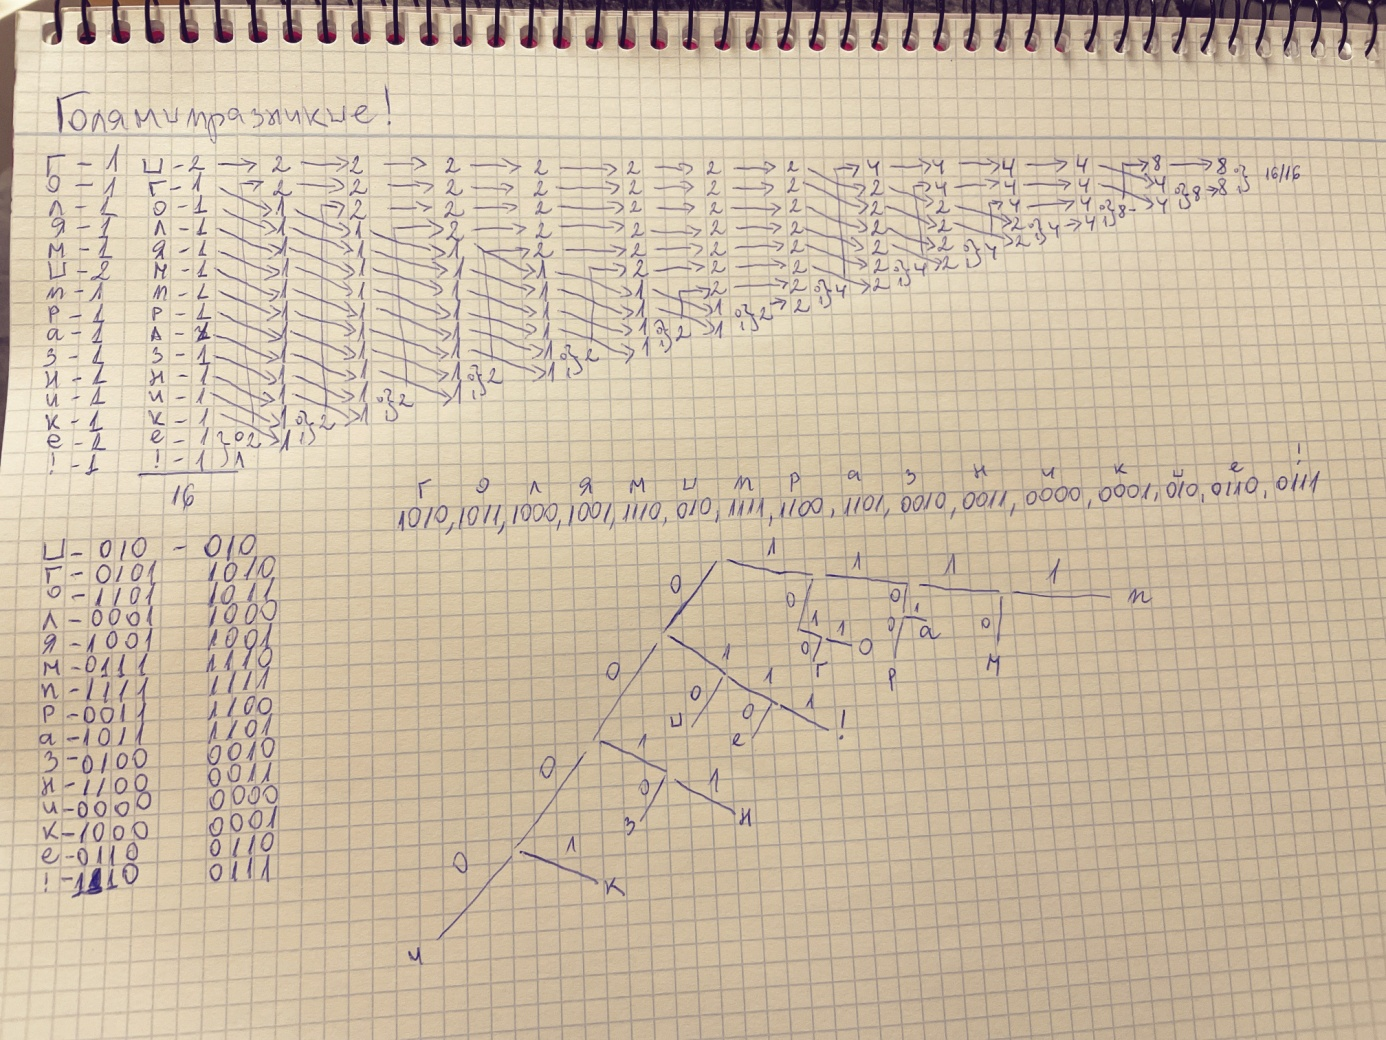 Голямипразникие!
Г-1 И-2 → 2 → 2 → 2 → 2 → 2 → 2 → 2 → 4 → 4 → 4 → 4 → 8 → 8
О-1 Г-1 2 → 2 → 2 → 2 → 2 → 2 → 2 2 4 → 4 → 4 4 8 16/16
Л-1 О-1 1 2 → 2 → 2 → 2 → 2 → 2 2 2 4 → 4 8 4
Я-1 Л-1 1 1 2 → 2 → 2 → 2 → 2 2 2 2 4 → 4
М-1 Я-1 1 1 1 2 → 2 → 2 → 2 2 2 2 4
И-2 М-1 1 1 1 1 2 → 2 → 2 2 4 2
П-1 П-1 1 1 1 1 1 2 → 2 4 2
Р-1 Р-1 1 1 1 1 1 1 2 → 2
а-1 А-1 1 1 1 1 1 2 1
З-1 З-1 1 1 1 1 2 1
Н-1 Н-1 1 1 1 2 1
и-1 и-1 1 1 2 1
к-1 к-1 1 2 1
е-1 е-1 0 2 1
!-1 !-1 1
16
Г О Л Я М И П Р а З Н и К Й е !
1010,1011,1000,1001,1110,010,1111,1100,1101,0100,1100,0000,1000,010,0110,0111
И-010 - 010
Г-0101 1010
О-1101 1011
Л-0001 1000
Я-1001 1001
М-0111 1110
П-1111 1111
Р-0011 1100
а-1011 1101
З-0100 0010
Н-1100 0011
и-0000 0000
К-1000 0001
е-0110 0110
!-1110 0111
0 1 1 1 1 п
0 1 0 1 1 О 0 Г 0 0 Р 1 а 0 М
0 1 0 и 1 0 е 1 !
0 1 0 З 1 Н
0 1 К
и